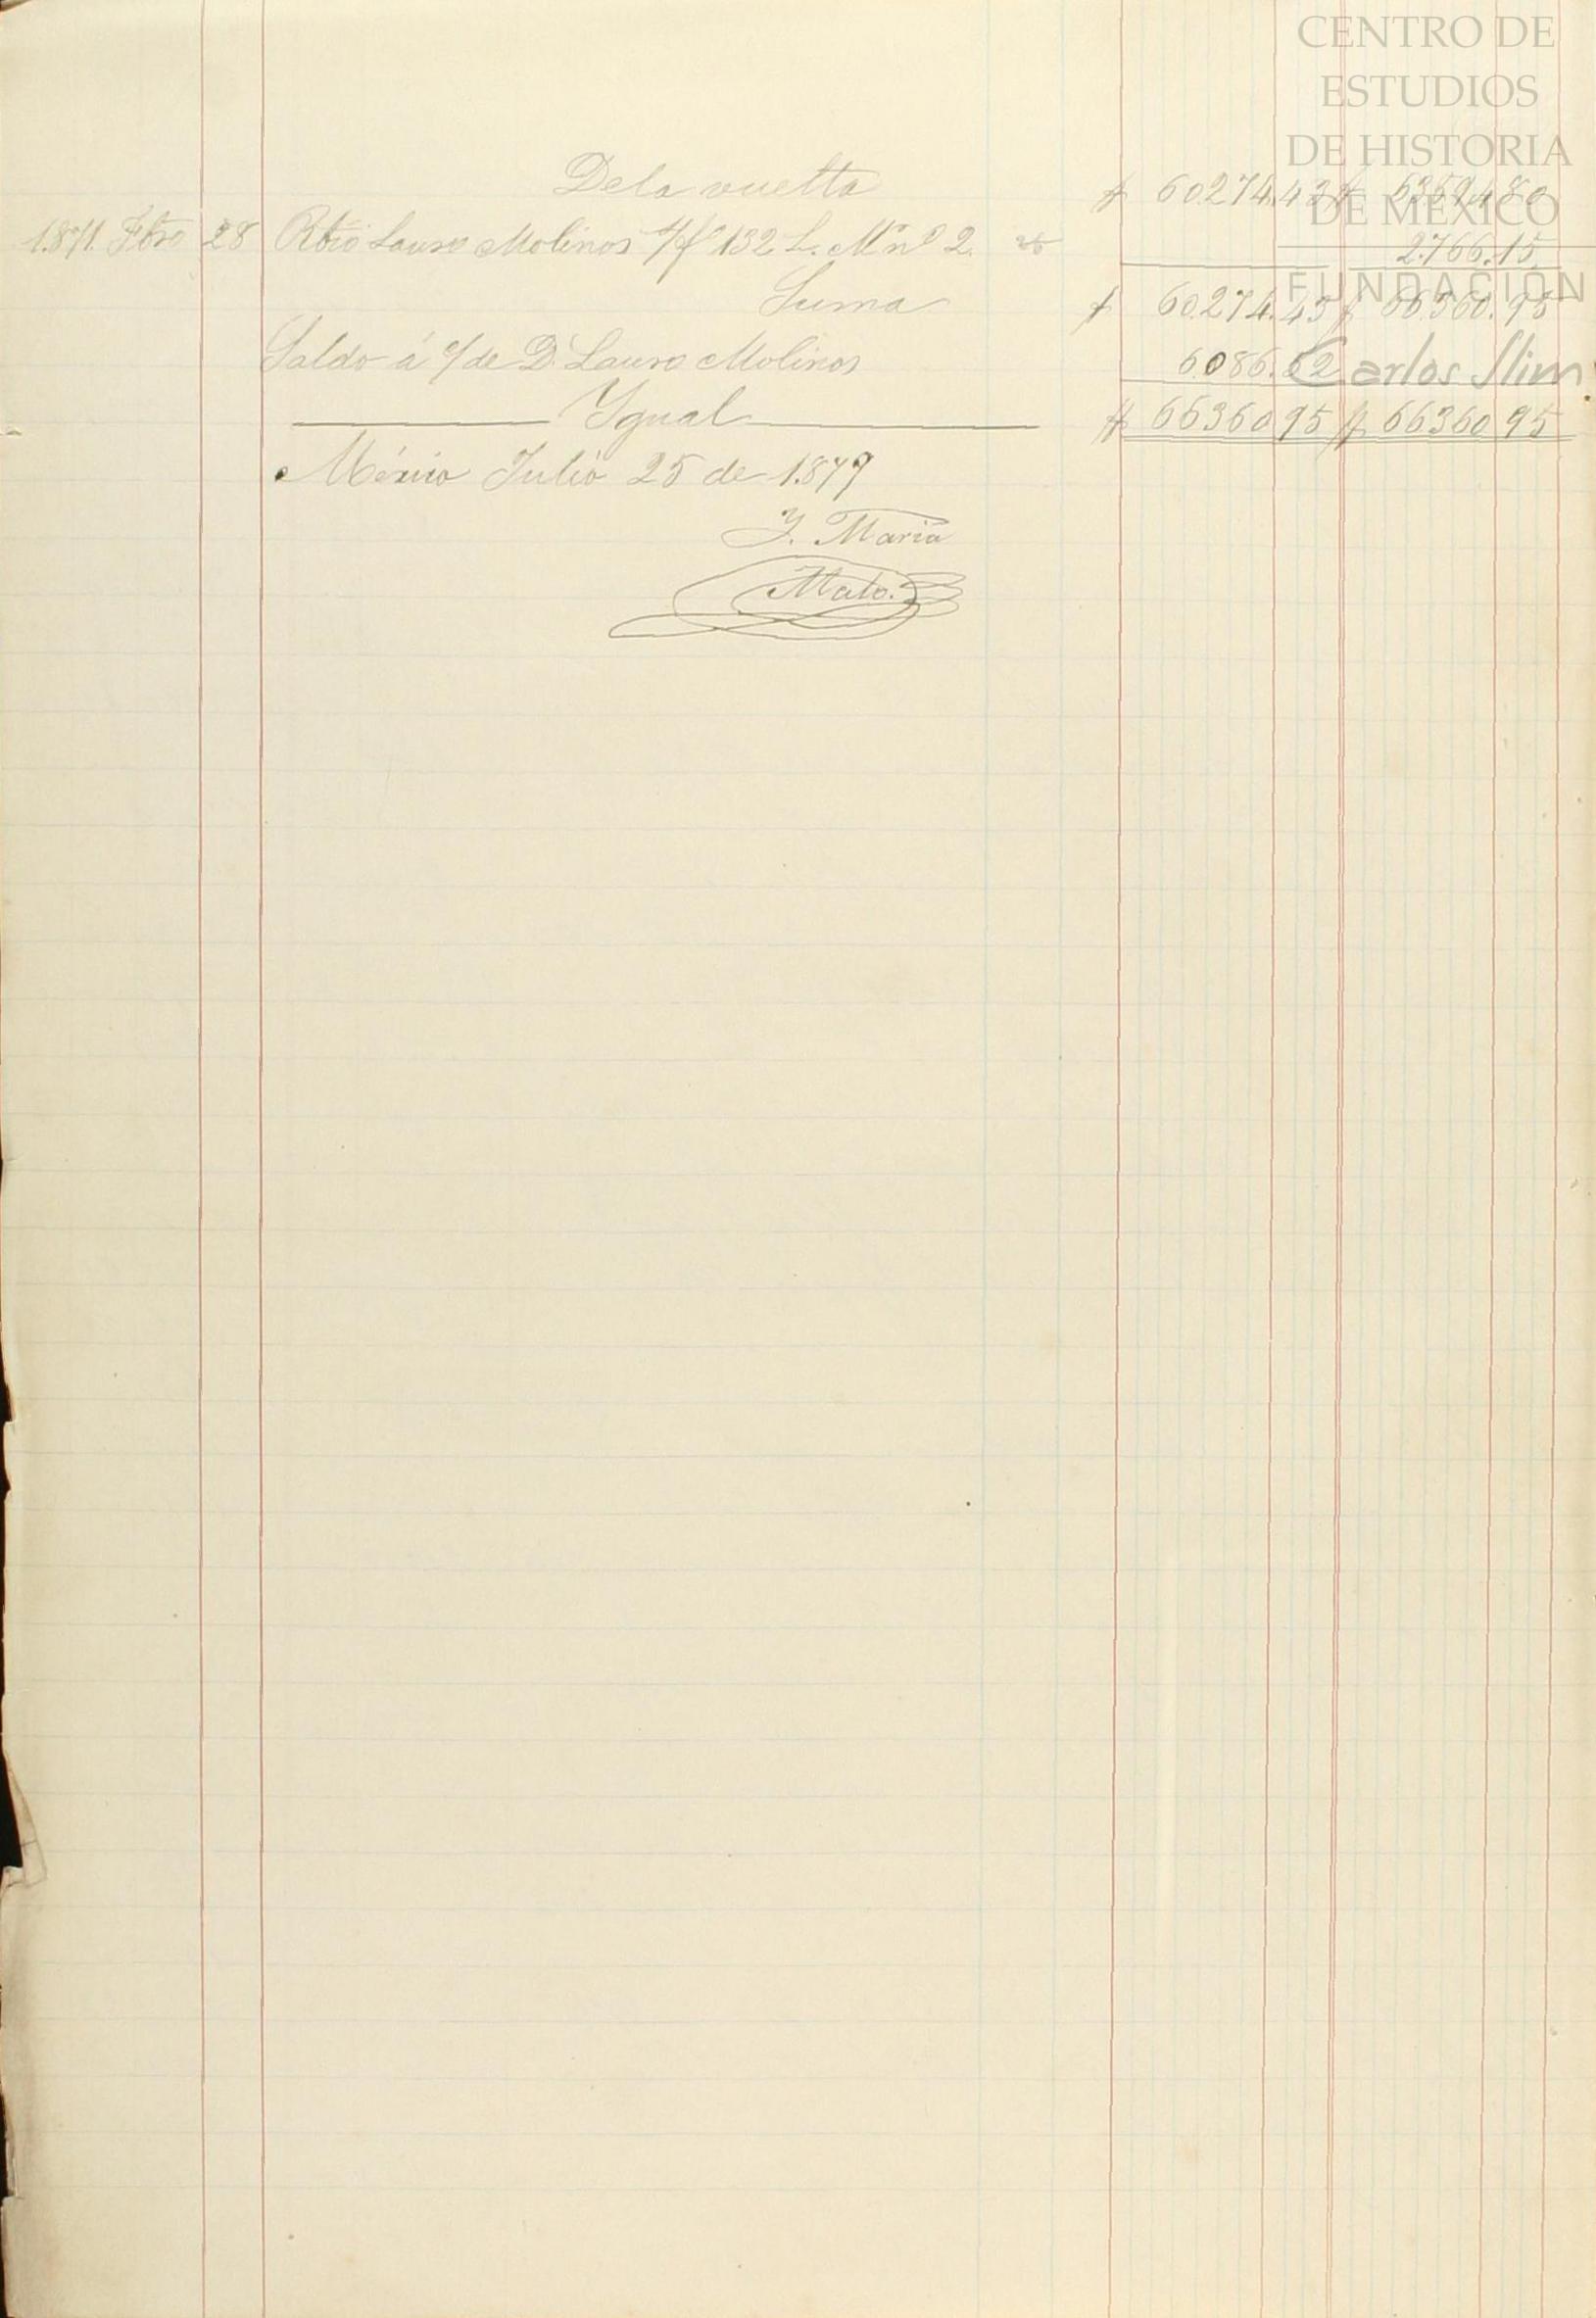 CENTRO DE
ESTUDIOS
DE HISTORIA
DE MÉXICO
FUNDACIÓN
Carlos Slim
De la vuelta $ 60274.43 $ 63594.80
1.871. Fbro 28 Rbió Lauro Molinos 132 L. M nº 2. 2.766.15
Suma $ 60.274.43 $ 66360.95
Saldo á c/ de D. Lauro Molinos 6.086.52
Ygual $ 66360 95 $ 66360 95
México Julio 25 de 1.879
Y. Maria
Malo.